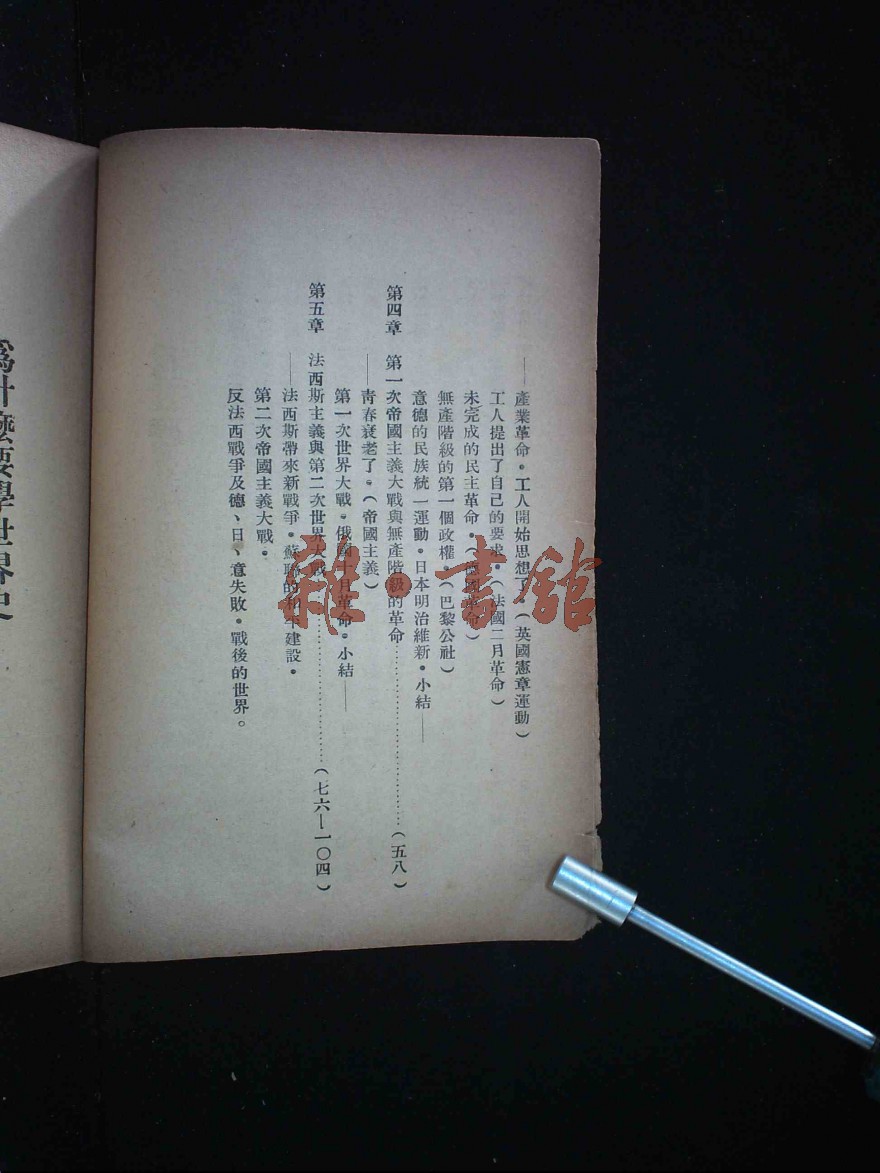 ——產業革命・工人開始思想了・(英國憲章運動)
工人提出了自己的要求・(法國二月革命)
未完成的民主革命・(德國革命)
無產階級的第一個政權・(巴黎公社)
意德的民族統一運動・日本明治維新・小結——
第四章 第一次帝國主義大戰與無產階級的革命……………………(五八)
——青春衰老了・(帝國主義)
第一次世界大戰・俄國十月革命・小結——
第五章 法西斯主義與第二次世界大戰……………………(七六—一〇四)
——法西斯帶來新戰爭・蘇聯的和平建設・
第二次帝國主義大戰・
反法西戰爭及德、日、意失敗・戰後的世界。
為什麼要學世界史
雜・書館